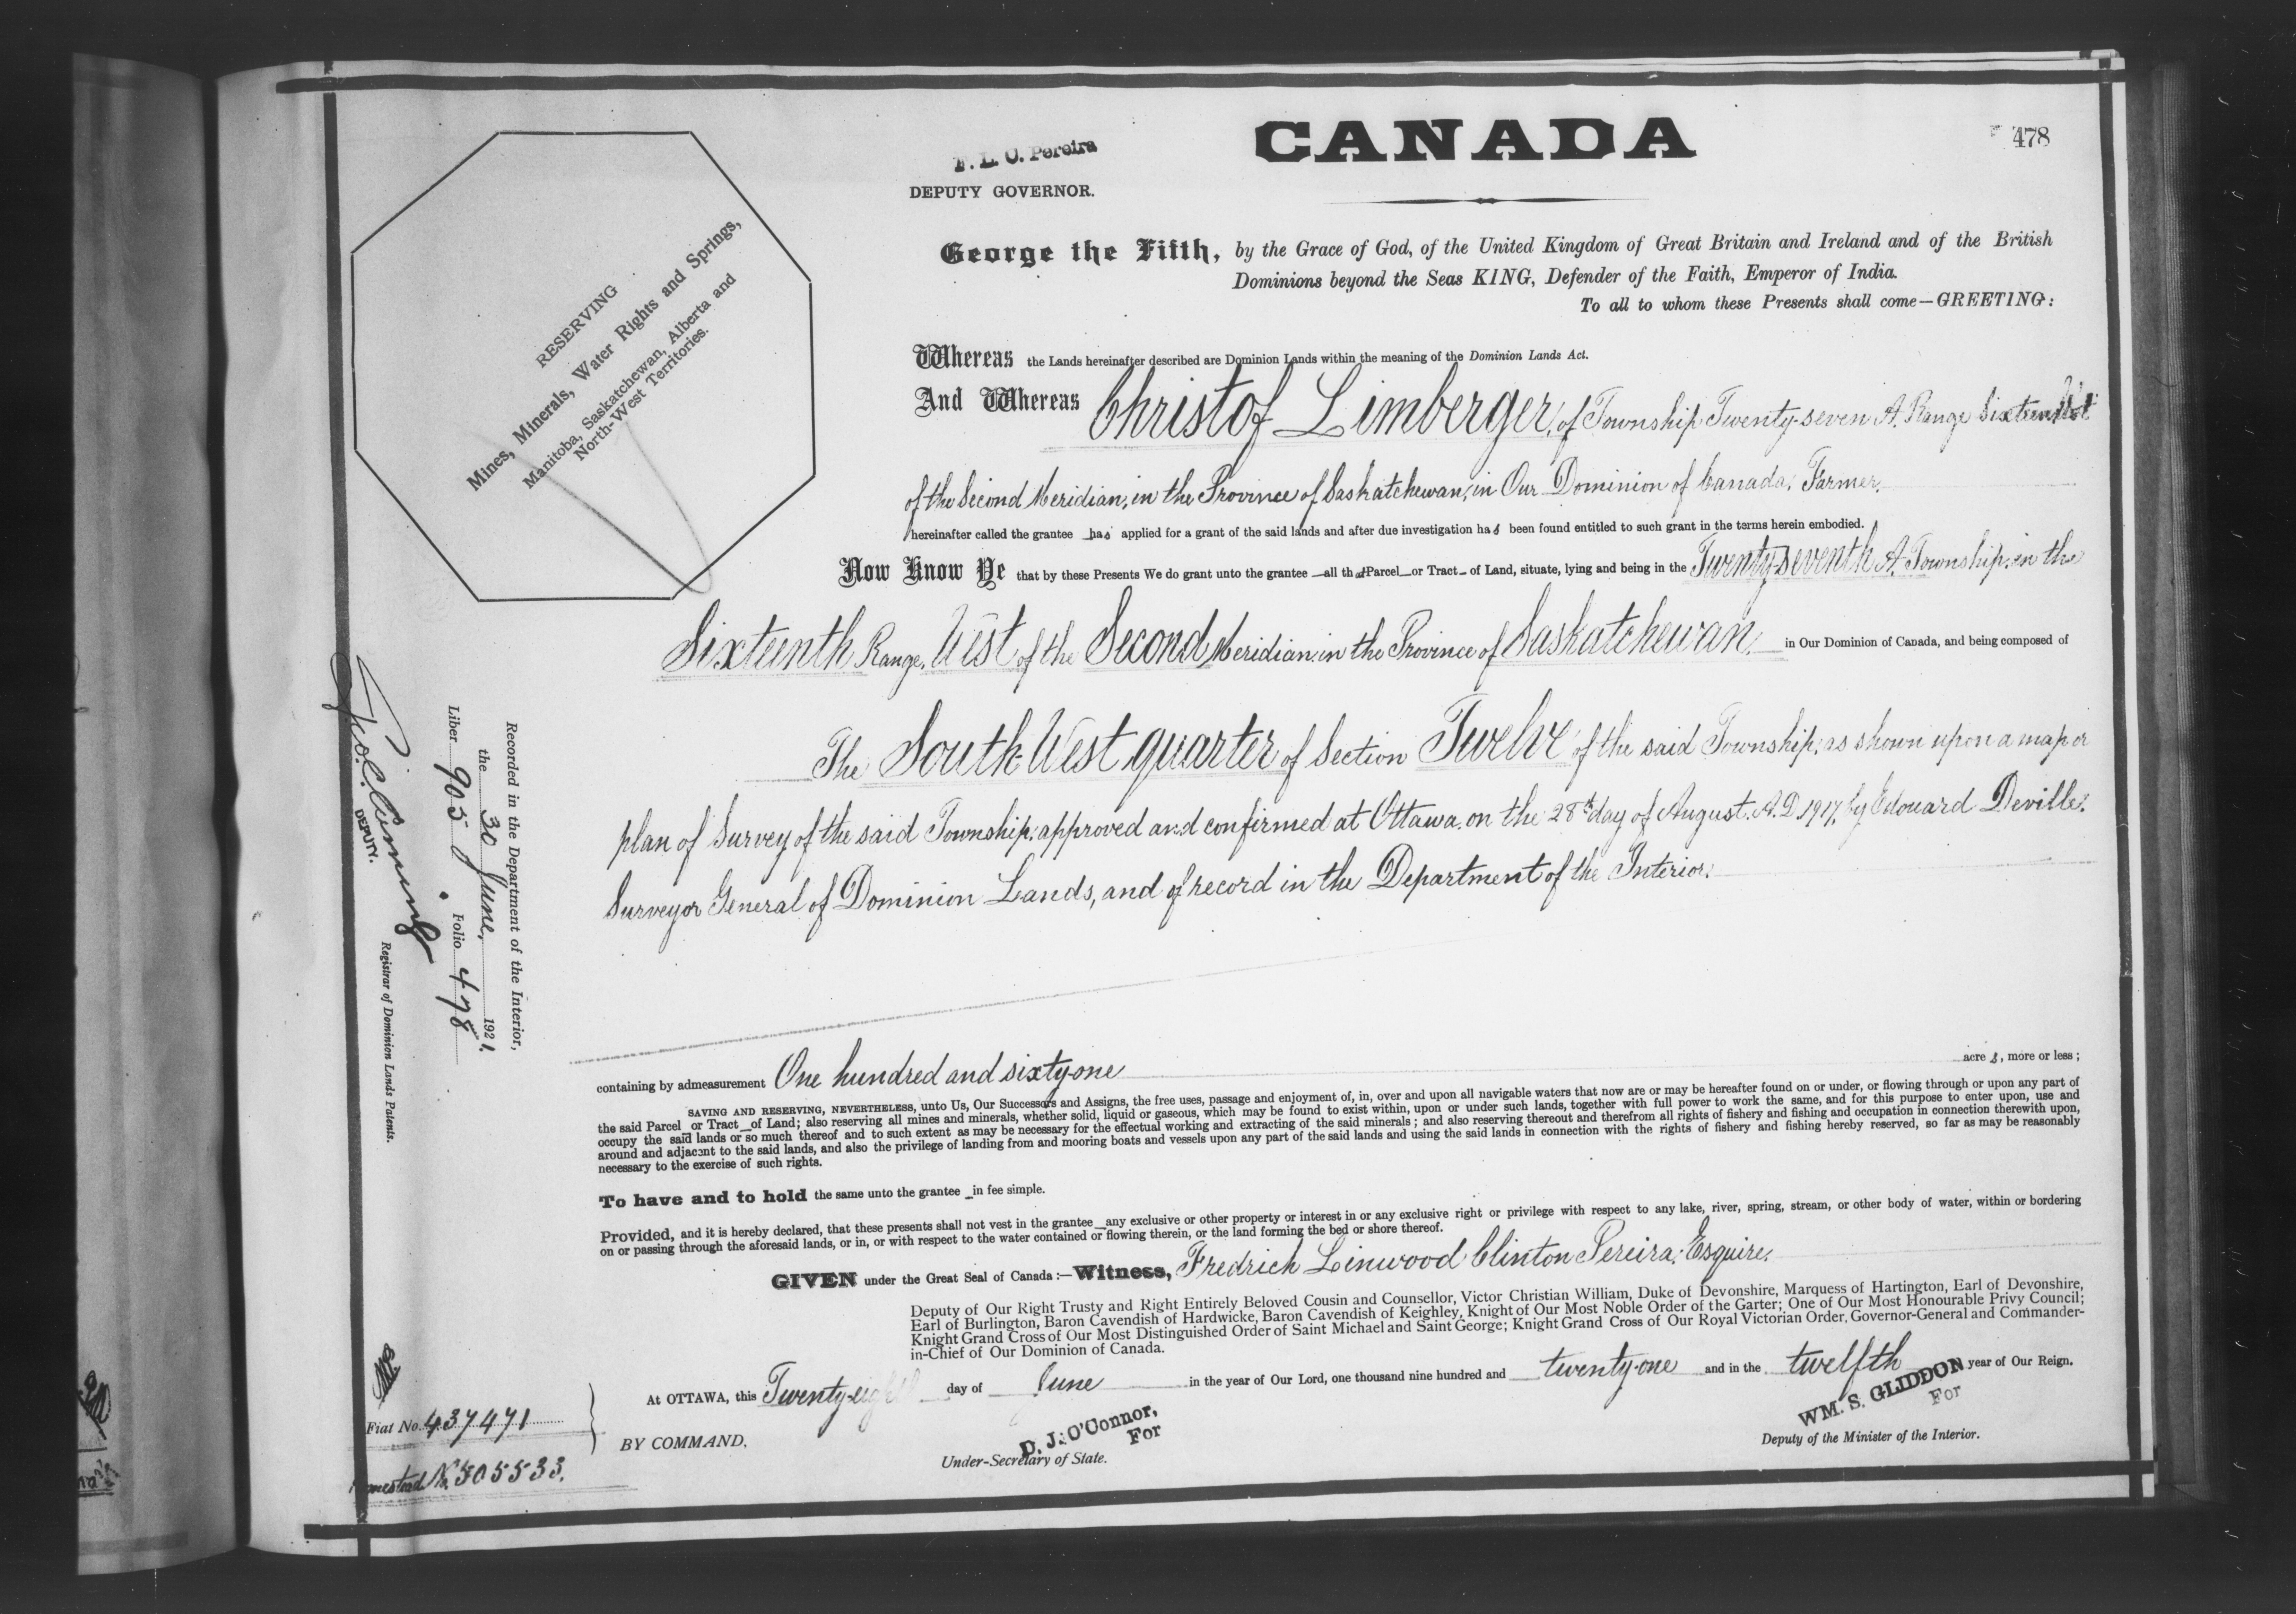 CANADA
478
F. L. C. Pereira
DEPUTY GOVERNOR.
George the Fifth, by the Grace of God, of the United Kingdom of Great Britain and Ireland and of the British
Dominions beyond the Seas KING, Defender of the Faith, Emperor of India.
To all to whom these Presents shall come—GREETING:
RESERVING
Mines, Minerals, Water Rights and Springs,
Manitoba, Saskatchewan, Alberta and
North-West Territories.
Whereas the Lands hereinafter described are Dominion Lands within the meaning of the Dominion Lands Act.
And Whereas Christof Limberger, of Township Twenty-seven A. Range Sixteen West
of the Second Meridian, in the Province of Saskatchewan, in Our Dominion of Canada, Farmer.
hereinafter called the grantee has applied for a grant of the said lands and after due investigation has been found entitled to such grant in the terms herein embodied.
Now Know Ye that by these Presents We do grant unto the grantee all that Parcel or Tract of Land, situate, lying and being in the Twenty-seventh A. Township, in the
Sixteenth Range, West of the Second Meridian, in the Province of Saskatchewan, in Our Dominion of Canada, and being composed of
The South-West quarter of Section Twelve of the said Township, as shown upon a map or
plan of Survey of the said Township, approved and confirmed at Ottawa, on the 28th day of August, A.D. 1917, by Edouard Deville,
Surveyor General of Dominion Lands, and of record in the Department of the Interior.
containing by admeasurement One hundred and sixty-one acres, more or less;
SAVING AND RESERVING, NEVERTHELESS, unto Us, Our Successors and Assigns, the free uses, passage and enjoyment of, in, over and upon all navigable waters that now are or may be hereafter found on or under, or flowing through or upon any part of
the said Parcel or Tract of Land; also reserving all mines and minerals, whether solid, liquid or gaseous, which may be found to exist within, upon or under such lands, together with full power to work the same, and for this purpose to enter upon, use and
occupy the said lands or so much thereof and to such extent as may be necessary for the effectual working and extracting of the said minerals; and also reserving thereout and therefrom all rights of fishery and fishing and occupation in connection therewith upon,
around and adjacent to the said lands, and also the privilege of landing from and mooring boats and vessels upon any part of the said lands and using the said lands in connection with the rights of fishery and fishing hereby reserved, so far as may be reasonably
necessary to the exercise of such rights.
To have and to hold the same unto the grantee in fee simple.
Provided, and it is hereby declared, that these presents shall not vest in the grantee any exclusive or other property or interest in or any exclusive right or privilege with respect to any lake, river, spring, stream, or other body of water, within or bordering
on or passing through the aforesaid lands, or in, or with respect to the water contained or flowing therein, or the land forming the bed or shore thereof.
GIVEN under the Great Seal of Canada:—Witness, Fredrich Linwood Clinton Pereira, Esquire,
Deputy of Our Right Trusty and Right Entirely Beloved Cousin and Counsellor, Victor Christian William, Duke of Devonshire, Marquess of Hartington, Earl of Devonshire,
Earl of Burlington, Baron Cavendish of Hardwicke, Baron Cavendish of Keighley, Knight of Our Most Noble Order of the Garter; One of Our Most Honourable Privy Council;
Knight Grand Cross of Our Most Distinguished Order of Saint Michael and Saint George; Knight Grand Cross of Our Royal Victorian Order, Governor-General and Commander-
in-Chief of Our Dominion of Canada.
At OTTAWA, this Twenty-eighth day of June in the year of Our Lord, one thousand nine hundred and twenty-one and in the twelfth year of Our Reign.
BY COMMAND,
D. J. O'Connor,
For
Under-Secretary of State.
WM. S. GLIDDON
For
Deputy of the Minister of the Interior.
Recorded in the Department of the Interior,
the 30 June, 1921.
Liber 905 Folio 478
DEPUTY.
Registrar of Dominion Lands Patents.
Fiat No. 437471
Homestead No. 505533.